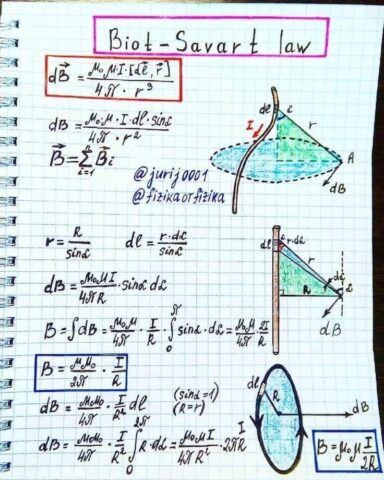 Biot-Savart law
d\vec{B} = \frac{μ₀·μ·I·[d\vec{ℓ}, \vec{r}]}{4π · r³}
dB = \frac{μ₀·μ·I·dℓ·sinα}{4π · r²}
\vec{B} = \sum_{i=1}^{n} \vec{B}i
@jurij0001
@fizikaотfizika
dℓ
α
I
r
A
dB
r = \frac{R}{sinα} dℓ = \frac{r·dα}{sinα}
dB = \frac{μ₀μI}{4πR} · sinα dα
B = ∫dB = \frac{μ₀μ}{4π} · \frac{I}{R} · \int_{0}^{π} sinα·dα = \frac{μ₀μ}{4π} \frac{2I}{R}
dℓ
α
r·dα
r
dα
R
α
dB
B = \frac{μμ₀}{2π} · \frac{I}{R}
dB = \frac{μμ₀}{4π} · \frac{I}{R²} dℓ (sinα=1)
(R=r)
dB = \frac{μμ₀}{4π} · \frac{I}{R²} \int_{0}^{2π} R·dα = \frac{μ₀μI}{4πR²} · 2πR
dℓ
R
dB
I
B = μ₀μ \frac{I}{2R}